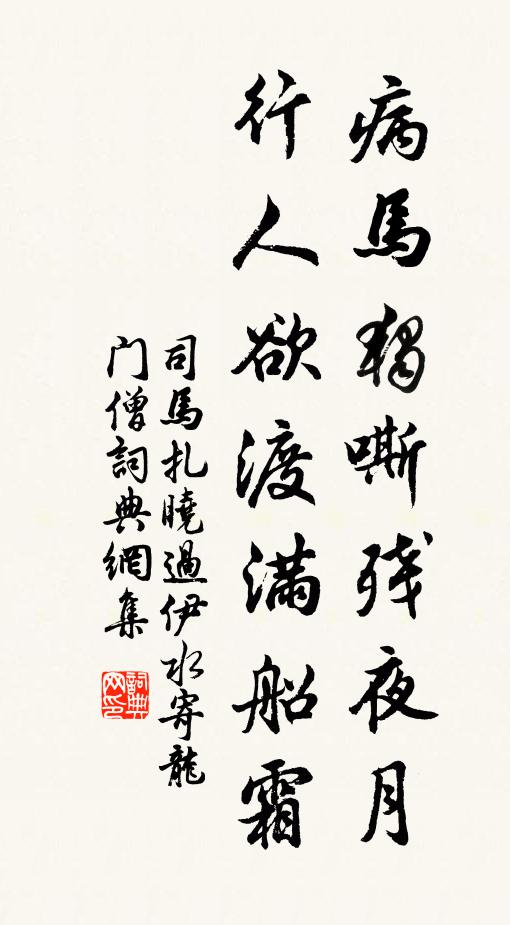 病馬獨嘶残夜月
行人欲渡满船霜
司馬扎曉過伊水寄龍
门僧詞典網集
詞典网印